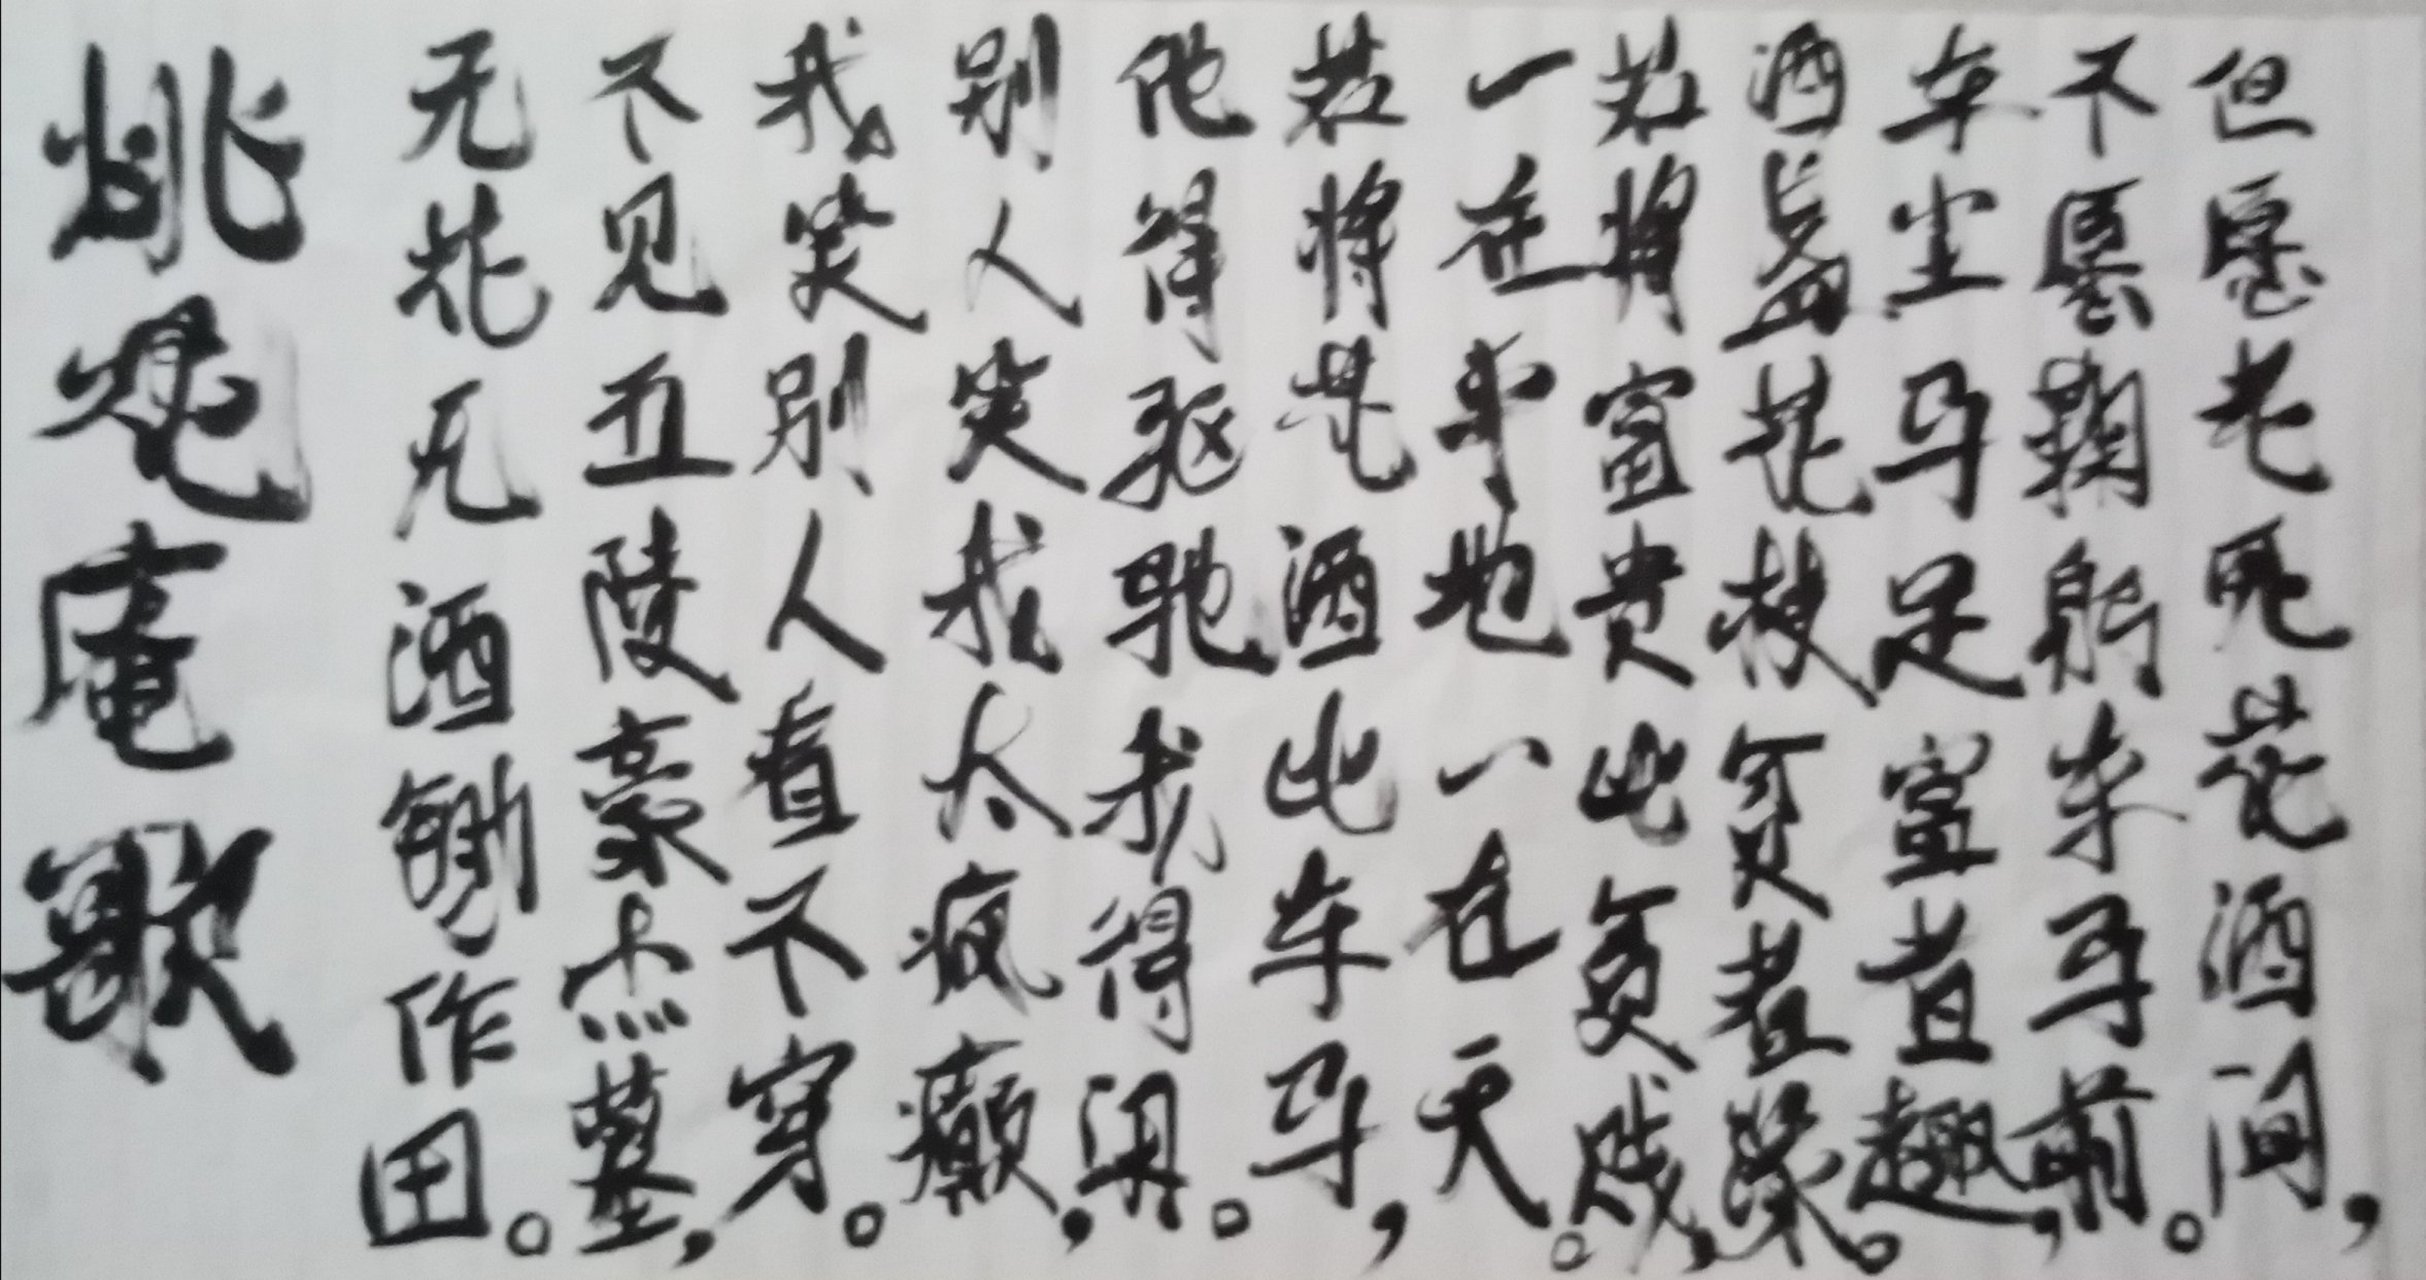 但愿老死花酒间，
不愿鞠躬车马前。
车尘马足富者趣，
酒盏花枝贫者缘。
若将富贵比贫贱，
一在平地一在天。
若将花酒比车马，
他得驱驰我得闲。
别人笑我太疯癫，
我笑别人看不穿。
不见五陵豪杰墓，
无花无酒锄作田。
桃花庵歌